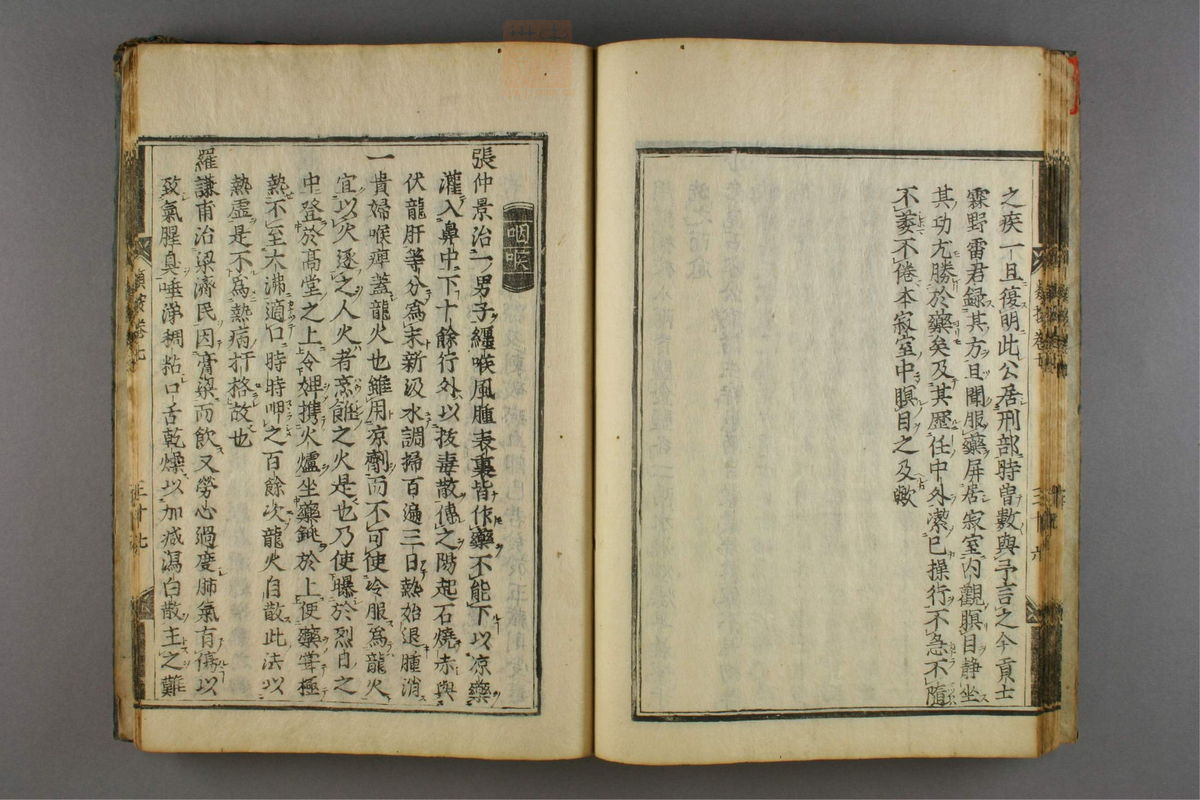 之疾一旦復明此公居刑部時曽數與予言之今貢士
霖野雷君録其方且聞服藥屏居寂室内觀瞑目静坐
其功尤勝於藥矣及其歷任中外潔已操行不急不隨
不菱不倦本寂室中瞑目之及歟
三十六
咽喉
張仲景治一男子纒喉風腫表裏皆作藥不能下以凉藥
灌入鼻中下十餘行外以抜毒散傅之陽起石燒赤與
伏龍肝等分爲末新汲水調掃百遍三日熱始退腫消
一貴婦喉痺蓋龍火也雖用凉劑而不可使冷服爲龍火
宜以火逐之人火者烹飪之火是也乃使曝於烈日之
中登於髙堂之上令婢携火爐坐藥銚於上使藥常極
熱不至大沸適口時時呷之百餘次龍火自散此法以
熱虚是不爲熱病扞格故也
羅謙甫治梁濟民因膏粱而飲又勞心過度肺氣有傷以
致氣腥臭唾涕稠粘口舌乾燥以加减瀉白散主之難
三十七